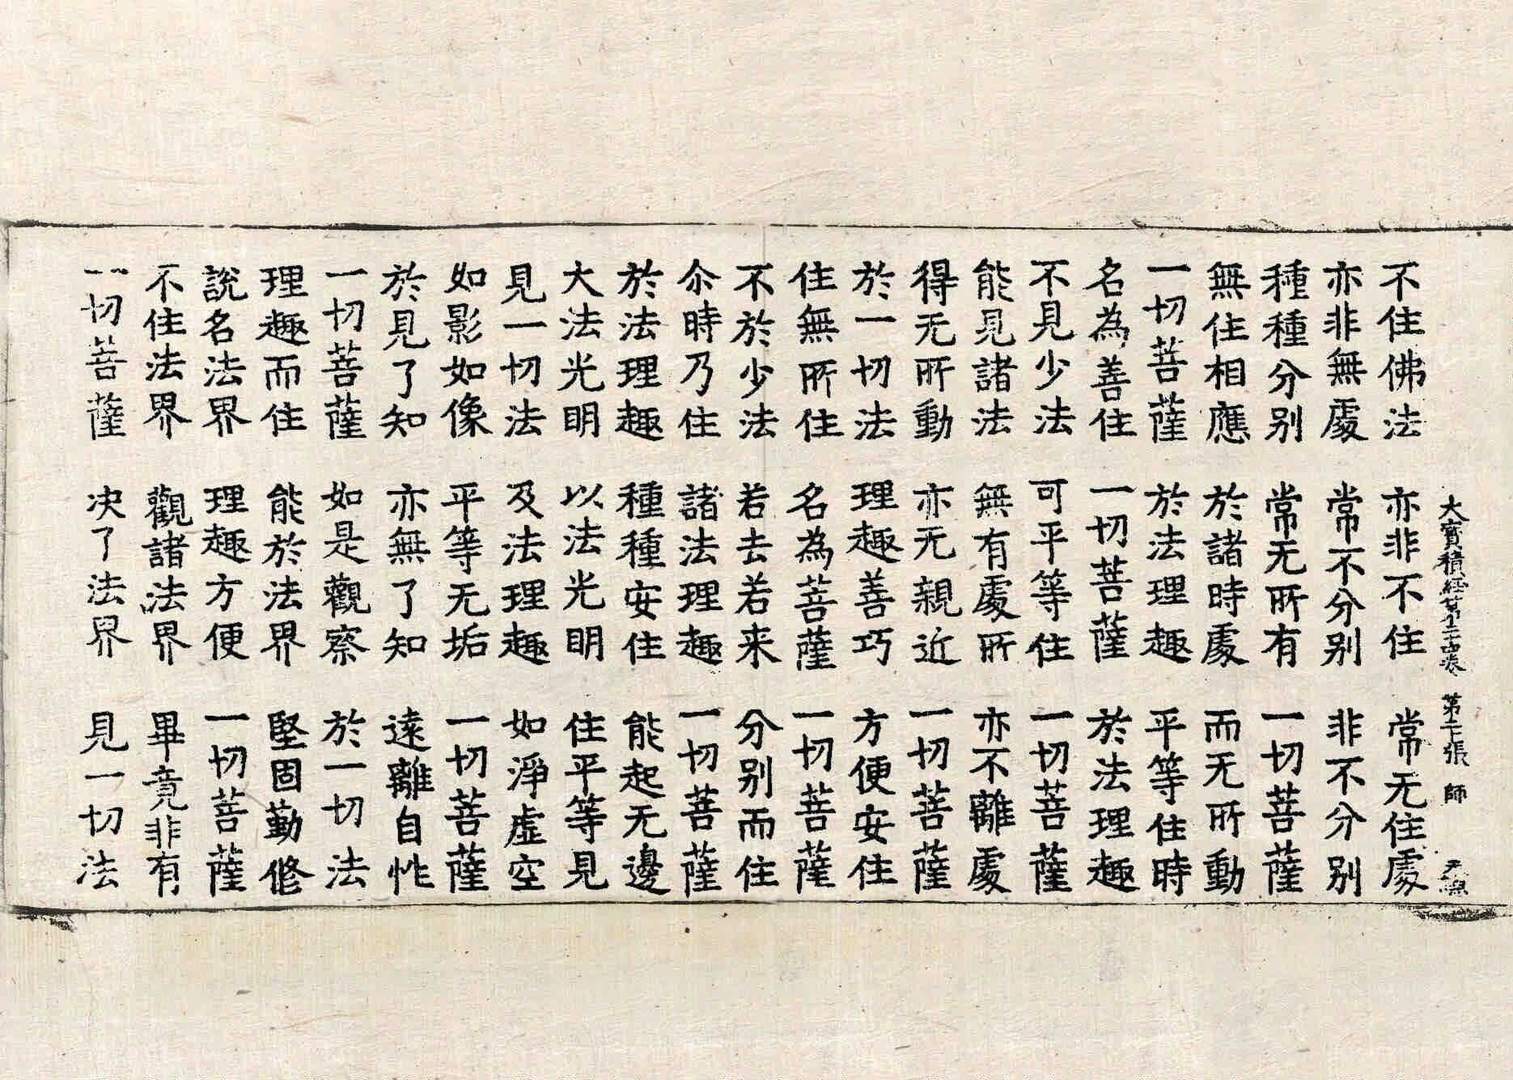 大寶積經第二十四卷 第十七張 師
不住佛法 亦非不住 常无住處
亦非無處 常不分别 非不分别
種種分别 常无所有 一切菩薩
無住相應 於諸時處 而无所動
一切菩薩 於法理趣 平等住時
名為善住 一切菩薩 於法理趣
不見少法 可平等住 一切菩薩
能見諸法 無有處所 亦不離處
得无所動 亦无親近 一切菩薩
於一切法 理趣善巧 方便安住
住無所住 名為菩薩 一切菩薩
不於少法 若去若来 分别而住
尒時乃住 諸法理趣 一切菩薩
於法理趣 種種安住 能起无邊
大法光明 以法光明 住平等見
見一切法 及法理趣 如淨虚空
如影如像 平等无垢 一切菩薩
於見了知 亦無了知 遠離自性
一切菩薩 如是觀察 於一切法
理趣而住 能於法界 堅固勤修
說名法界 理趣方便 一切菩薩
不住法界 觀諸法界 畢竟非有
一切菩薩 决了法界 見一切法